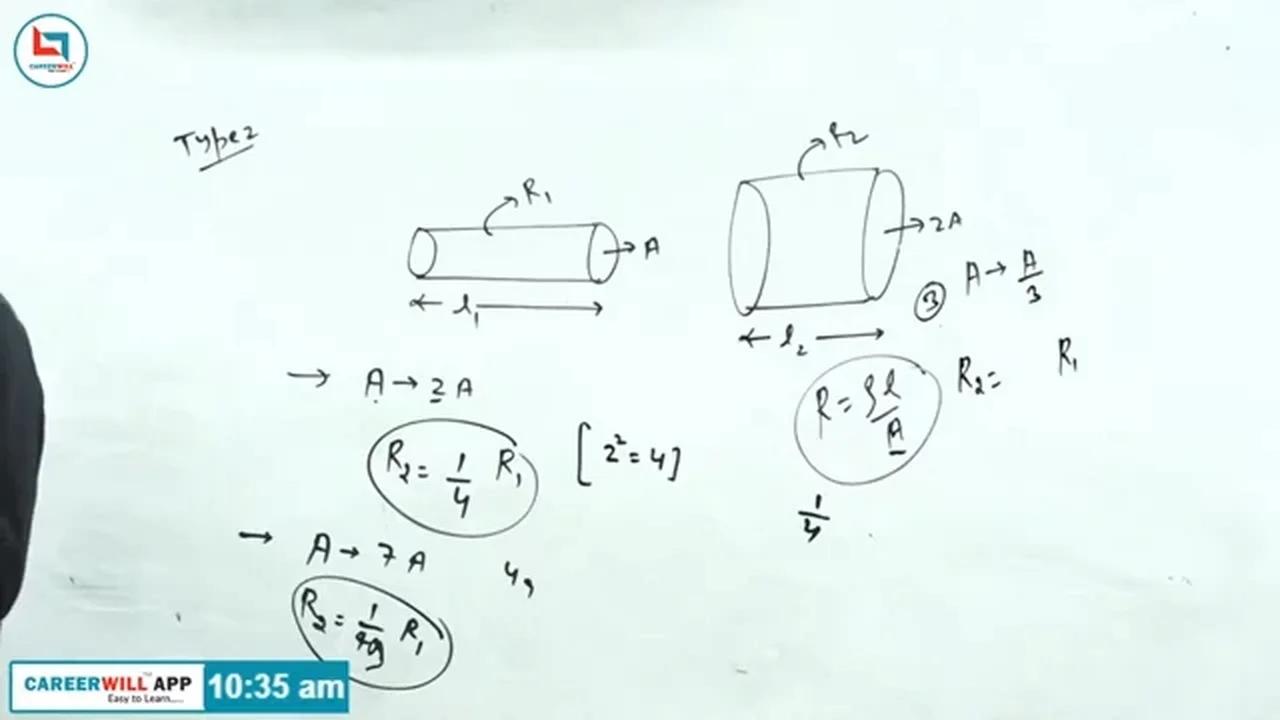 CAREERWILL
Type 2
R₁
A
l₁
R₂
2A
l₂
③ A → A/3
→ A → 2A
R = ρl/A
R₂ = R₁
R₂ = 1/4 R₁ [2² = 4]
1/4
→ A → 7A
49
R₂ = 1/49 R₁
CAREERWILL APP
Easy to Learn.....
10:35 am